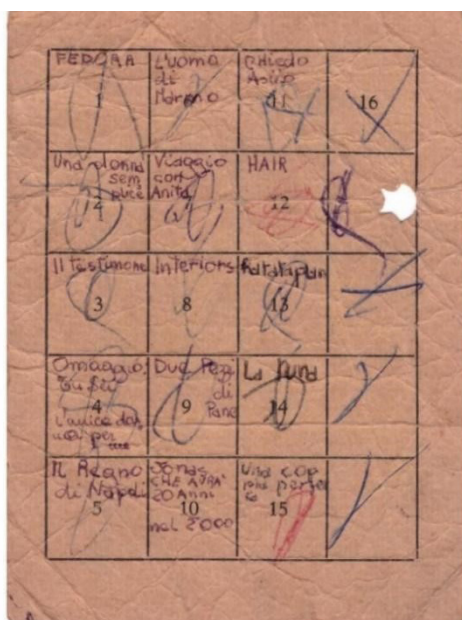 FEDORA
1
L'uomo
di
Marmo
Chiedo
Asilo
11
16
Una donna
sem
plice
2
Viaggio
con
Anita
HAIR
12
Il testimone
3
Interiors
8
Ratataplan
13
Omaggio
4
Due Pezzi
di
Pane
9
La Luna
14
Il Regno
di Napoli
5
Jonas
CHE AVRA'
20 Anni
10
nel 2000
Una cop
pia perfet
15